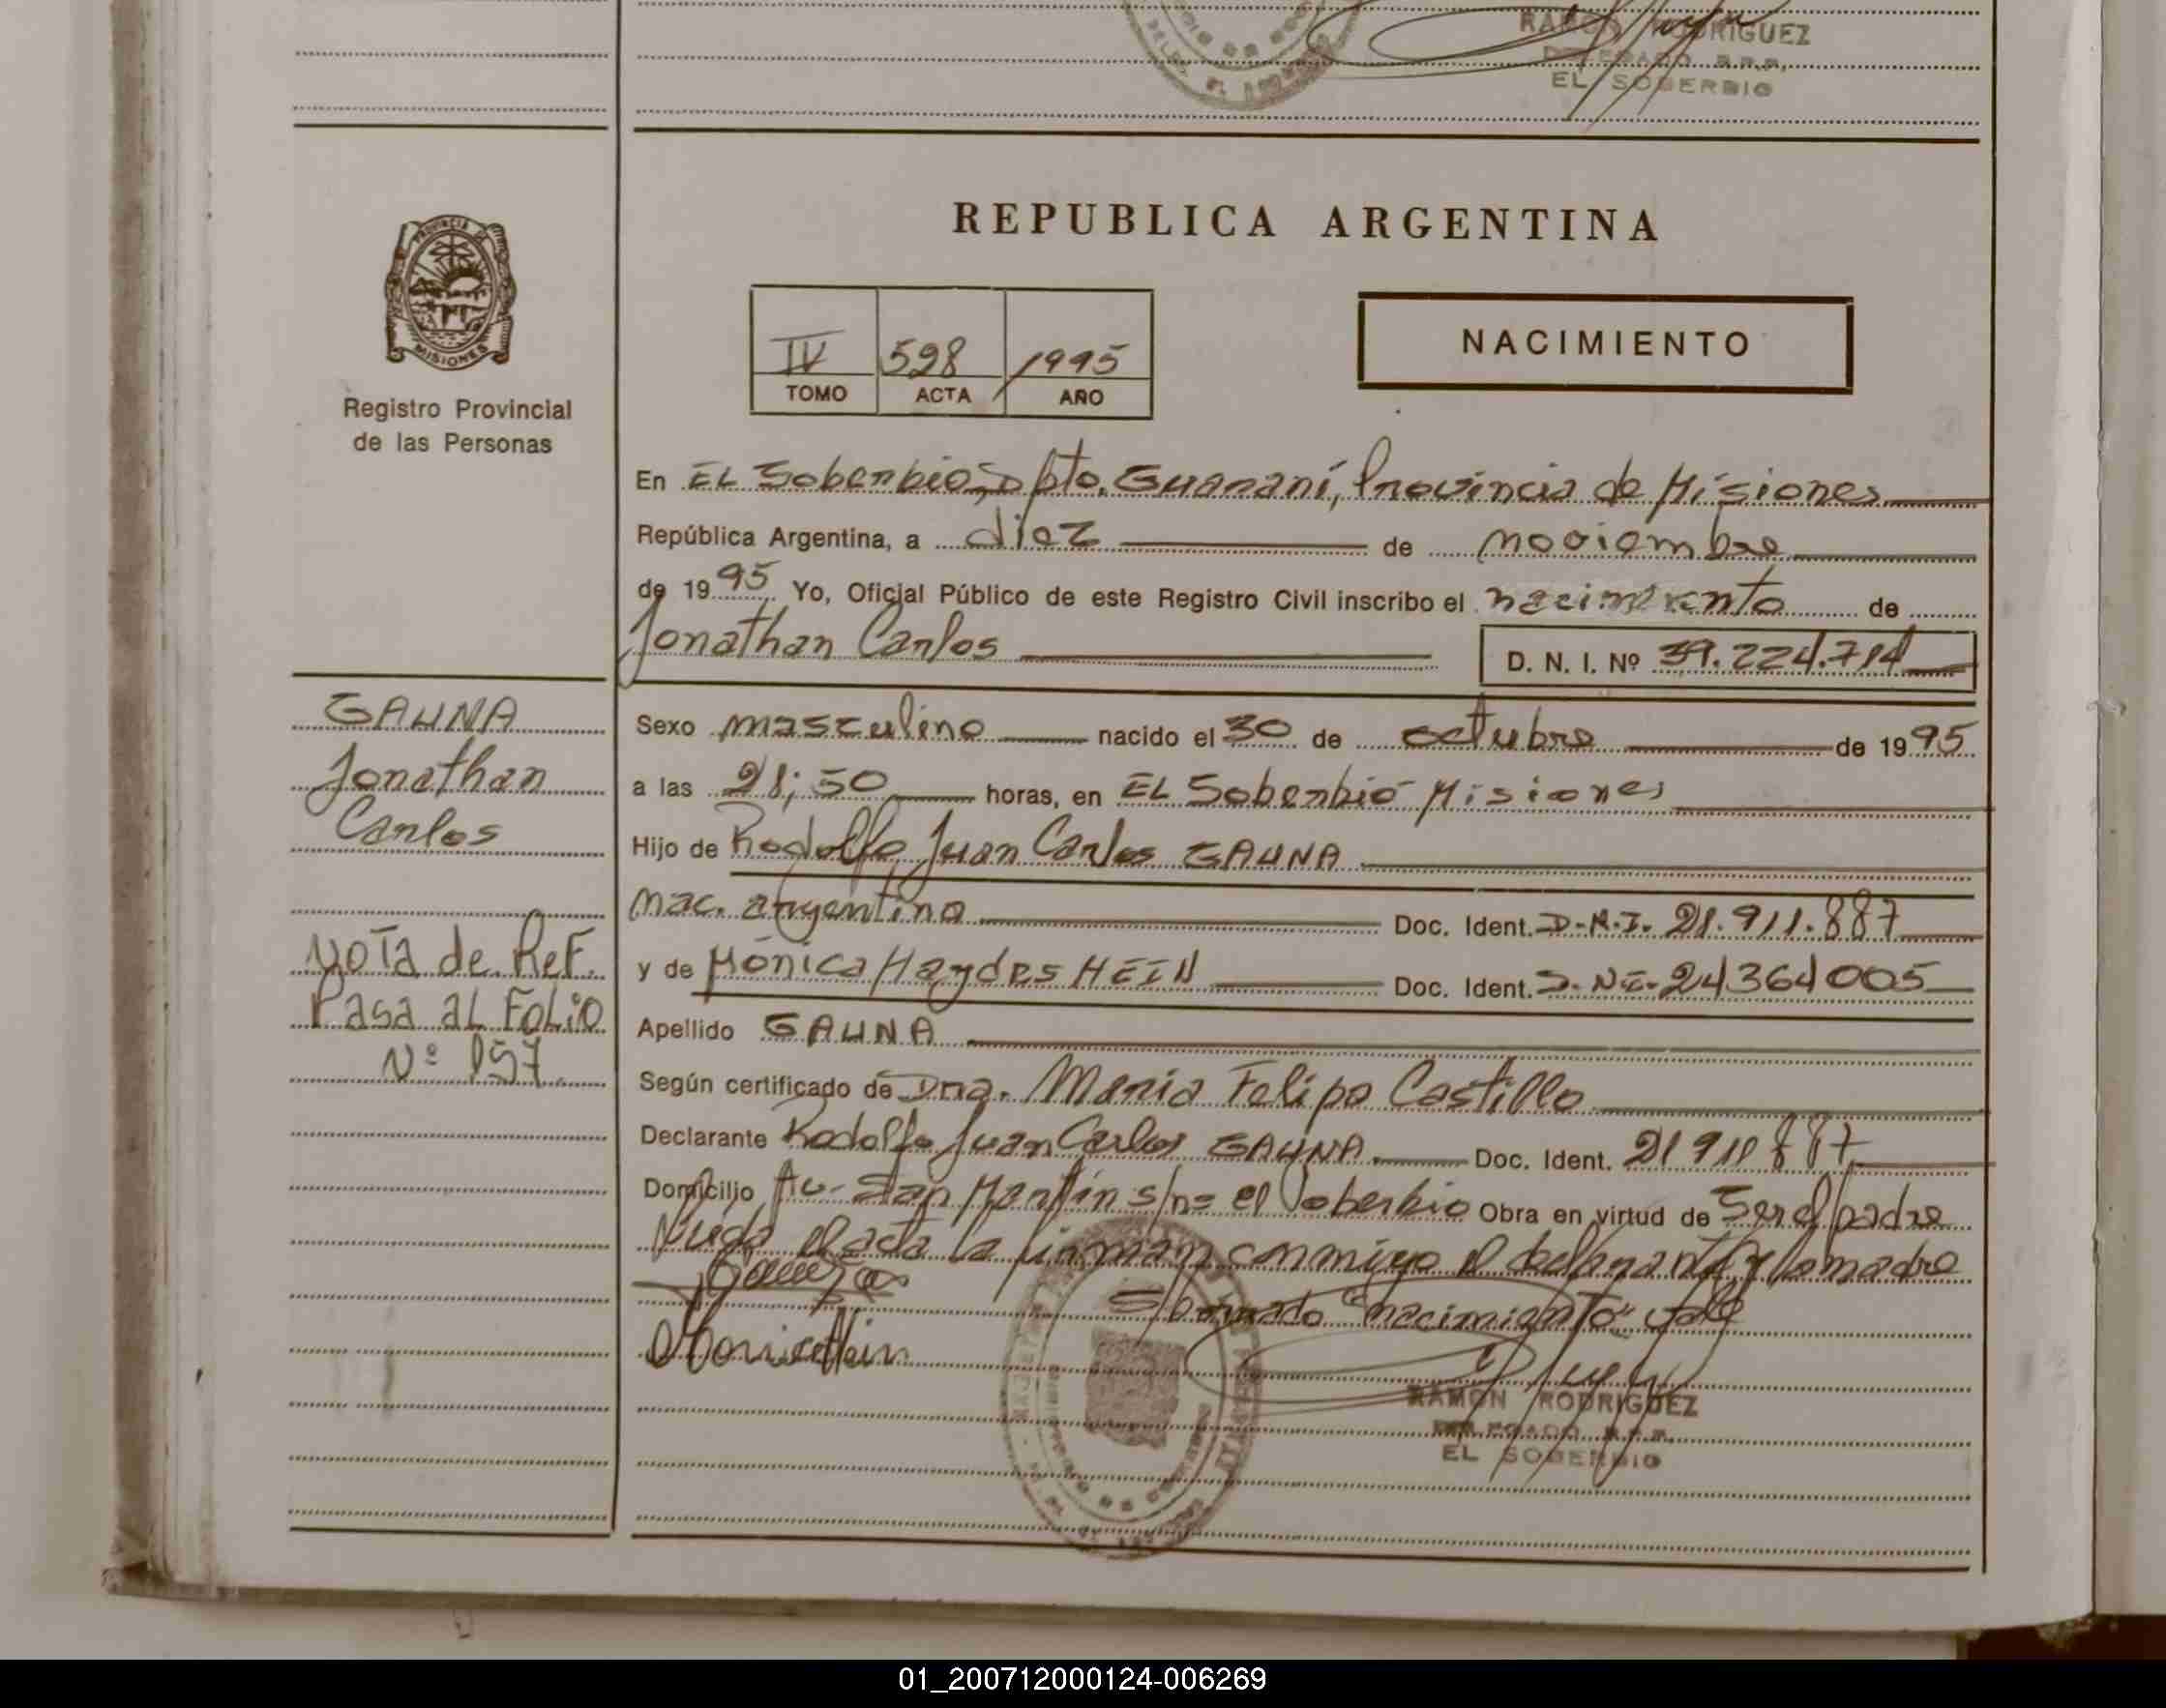 RAMON RODRIGUEZ
DELEGADO R.R.P.
EL SOBERBIO
PROVINCIA DE
MISIONES
Registro Provincial
de las Personas
REPUBLICA ARGENTINA
IV 598 1995
TOMO ACTA AÑO
NACIMIENTO
En EL Soberbio, Dpto. Guaraní, Provincia de Misiones
República Argentina, a diez de noviembre
de 1995 Yo, Oficial Público de este Registro Civil inscribo el nacimiento de
Jonathan Carlos D. N. I. Nº 39.224.714
GAUNA
Jonathan
Carlos
Nota de Ref.
Pasa al Folio
Nº 157
Sexo masculino nacido el 30 de octubre de 1995
a las 21;50 horas, en EL Soberbio Misiones
Hijo de Rodolfo Juan Carlos GAUNA
nac. argentino Doc. Ident. D.N.I. 21.911.887
y de Mónica Haydes HEIN Doc. Ident. D.N.I. 24364005
Apellido GAUNA
Según certificado de Dña. Maria Felipa Castillo
Declarante Rodolfo Juan Carlos GAUNA Doc. Ident. 21911887
Domicilio Av. San Martín s/nº el Soberbio Obra en virtud de Ser el padre
el acta la firman conmigo el declarante y la madre
S/borrado "nacimiento" vale
Gauna
Monica Hein
RAMON RODRIGUEZ
DELEGADO R.R.P.
EL SOBERBIO
01_200712000124-006269